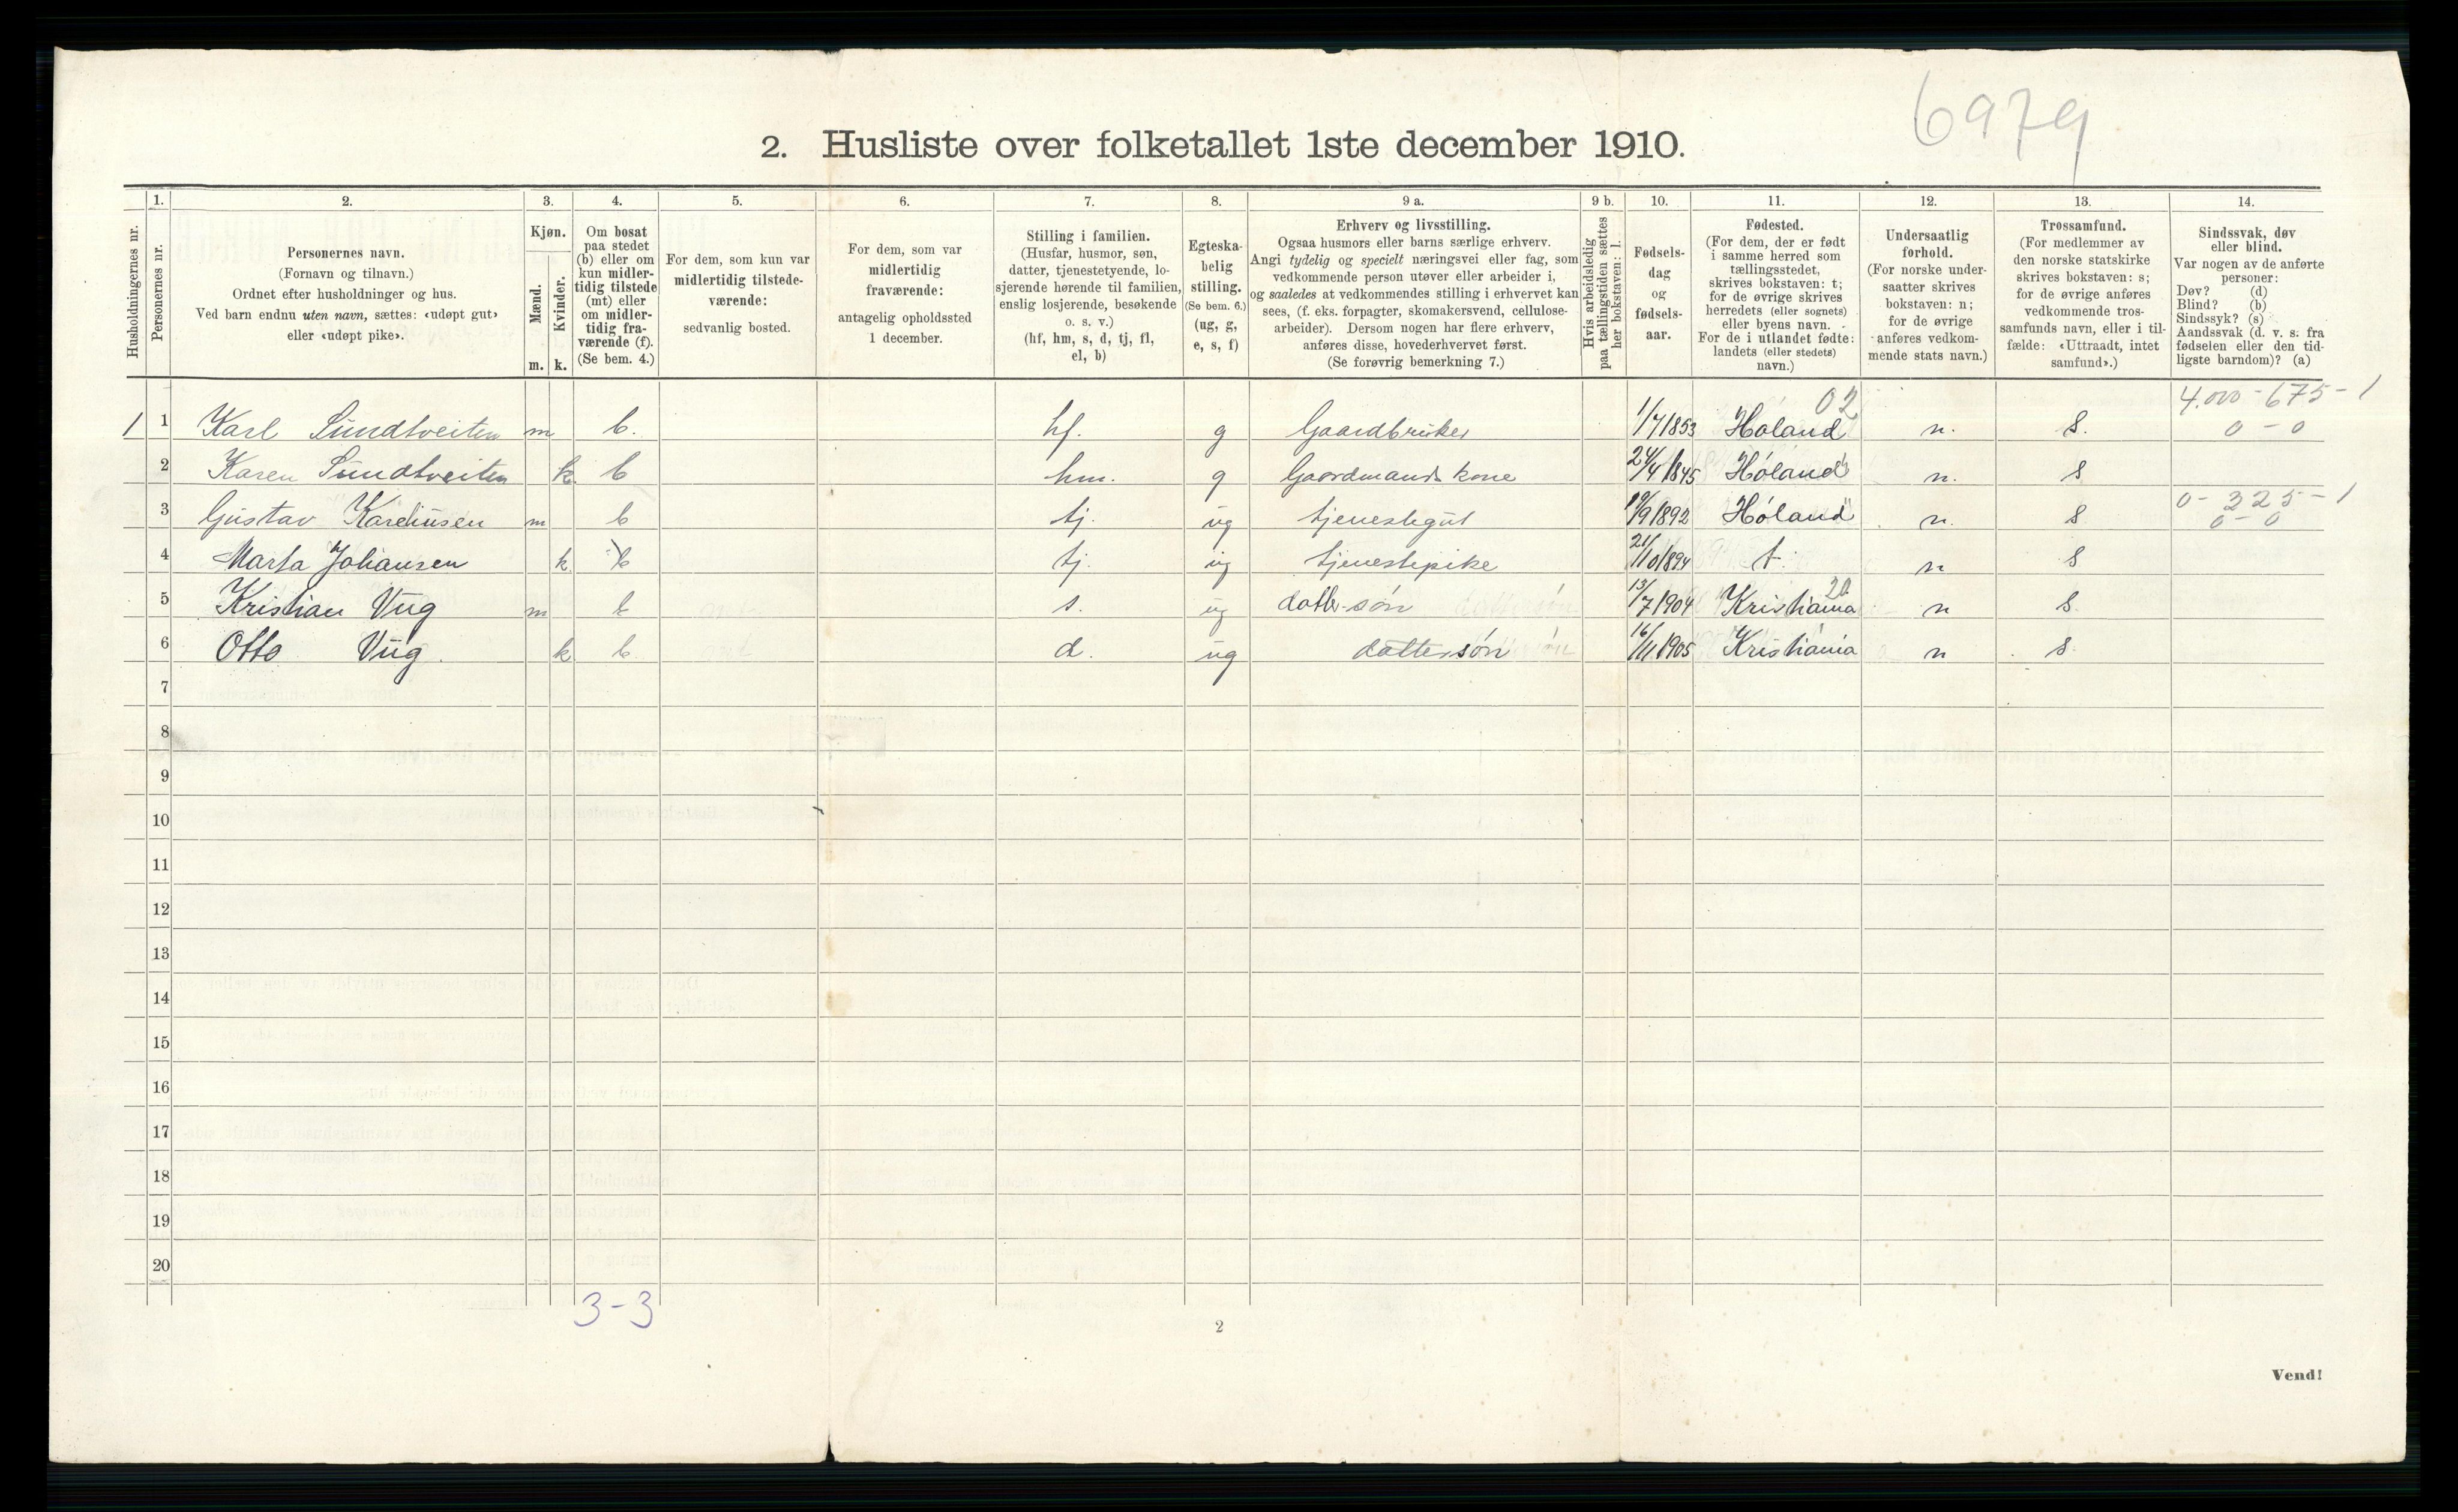 6979
2. Husliste over folketallet 1ste december 1910.
Husholdningernes nr.
1.
Personernes nr.
2.
Personernes navn.
(Fornavn og tilnavn.)
Ordnet efter husholdninger og hus.
Ved barn endnu uten navn, sættes: «udøpt gut»
eller «udøpt pike».
3.
Kjøn.
Mænd.
Kvinder.
m. k.
4.
Om bosat
paa stedet
(b) eller om
kun midler-
tidig tilstede
(mt) eller
om midler-
tidig fra-
værende (f).
(Se bem. 4.)
5.
For dem, som kun var
midlertidig tilstede-
værende:
sedvanlig bosted.
6.
For dem, som var
midlertidig
fraværende:
antagelig opholdssted
1 december.
7.
Stilling i familien.
(Husfar, husmor, søn,
datter, tjenestetyende, lo-
sjerende hørende til familien,
enslig losjerende, besøkende
o. s. v.)
(hf, hm, s, d, tj, fl,
el, b)
8.
Egteska-
belig
stilling.
(Se bem. 6.)
(ug, g,
e, s, f)
9 a.
Erhverv og livsstilling.
Ogsaa husmors eller barns særlige erhverv.
Angi tydelig og specielt næringsvei eller fag, som
vedkommende person utøver eller arbeider i,
og saaledes at vedkommendes stilling i erhvervet kan
sees, (f. eks. forpagter, skomakersvend, cellulose-
arbeider). Dersom nogen har flere erhverv,
anføres disse, hovederhvervet først.
(Se forøvrig bemerkning 7.)
9 b.
Hvis arbeidsledig
paa tællingstiden sættes
her bokstaven: l.
10.
Fødsels-
dag
og
fødsels-
aar.
11.
Fødested.
(For dem, der er født
i samme herred som
tællingsstedet,
skrives bokstaven: t;
for de øvrige skrives
herredets (eller sognets)
eller byens navn.
For de i utlandet fødte:
landets (eller stedets)
navn.)
12.
Undersaatlig
forhold.
(For norske under-
saatter skrives
bokstaven: n;
for de øvrige
anføres vedkom-
mende stats navn.)
13.
Trossamfund.
(For medlemmer av
den norske statskirke
skrives bokstaven: s;
for de øvrige anføres
vedkommende tros-
samfunds navn, eller i til-
fælde: «Uttraadt, intet
samfund».)
14.
Sindssvak, døv
eller blind.
Var nogen av de anførte
personer:
Døv? (d)
Blind? (b)
Sindssyk? (s)
Aandssvak (d. v. s. fra
fødselen eller den tid-
ligste barndom)? (a)
02 4.000-675-1
1 1 Karl Sundtveiten m b. hf. g Gaardbruker 1/7 1853 Høland n. S. 0-0
2 Karen Sundtveiten k b hm. g Gaardmands kone 24/4 1845 Høland n. S
0-325-1
3 Gustav Kareliusen m b tj. ug tjenestegut 19/9 1892 Høland n. S 0-0
4 Marta Johansen k b tj. ug tjenestepike 21/10 1894 t. n S
20
5 Kristian Vug m b s. ug datter-søn 13/7 1904 Kristiania n S.
6 Otto Vug. k b d. ug dattersøn 16/11 1905 Kristiania n S.
7
8
9
10
11
12
13
14
15
16
17
18
19
20
3-3
2
Vend!